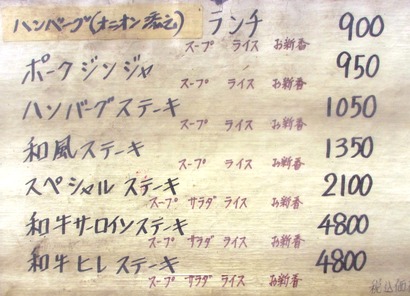 ハンバーグ(オニオン添え) ランチ 900
スープ ライス お新香
ポークジンジャ 950
スープ ライス お新香
ハンバーグステーキ 1050
スープ ライス お新香
和風ステーキ 1350
スープ ライス お新香
スペシャルステーキ 2100
スープ サラダ ライス お新香
和牛サーロインステーキ 4800
スープ サラダ ライス お新香
和牛ヒレステーキ 4800
スープ サラダ ライス お新香
税込価